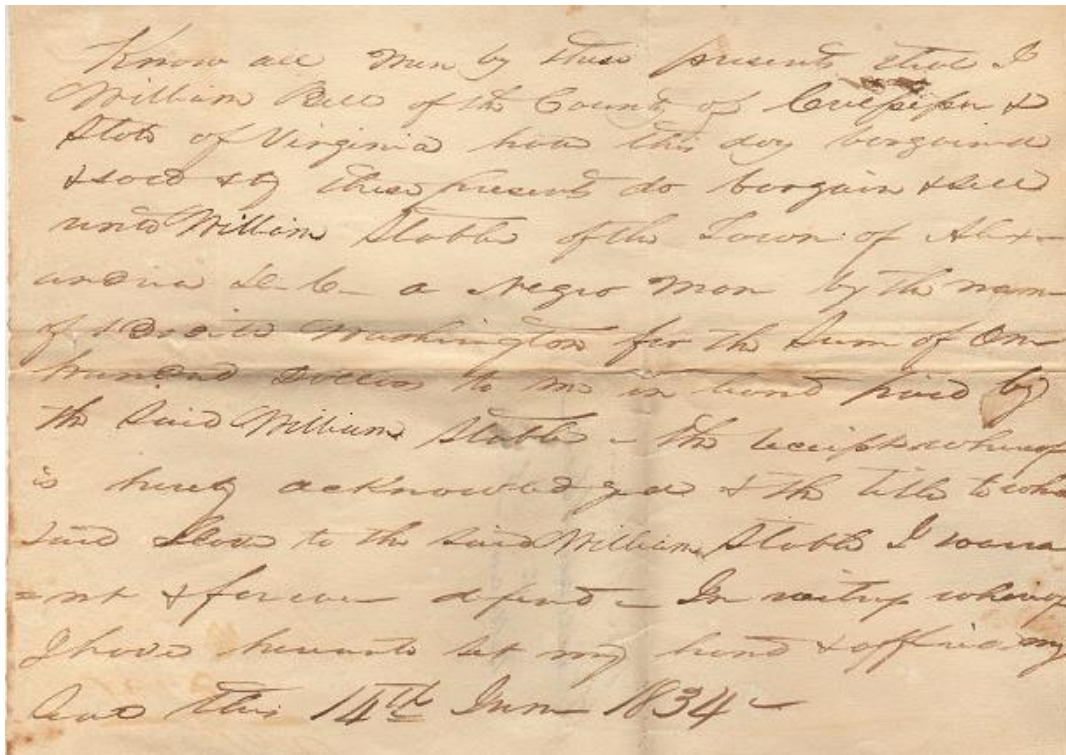 Know all Men by these presents that I
William Bell of the County of Culpeper &
State of Virginia have this day bargained
& sold & by these presents do bargain & sell
unto William Stabler of the Town of Alex-
andria D. C. a Negro Man by the name
of Washington for the Sum of One
hundred dollars to me in hand paid by
the said William Stabler - the receipt whereof
is hereby acknowledged & the title to
said Slave to the said William Stabler I warra
=nt & forever defend - In witness whereof
I have hereunto set my hand & affixed my
Seal this 14th June 1834 -